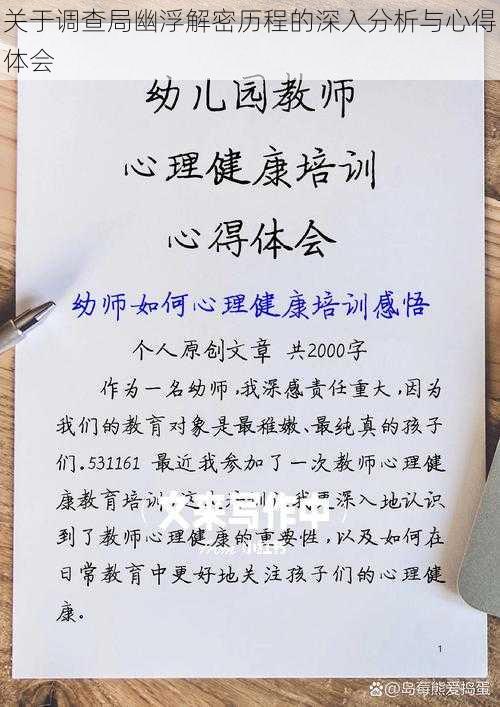 关于调查局幽浮解密历程的深入分析与心得
体会
幼儿园教师
心理健康培训
心得体会
幼师如何心理健康培训感悟
个人原创文章 共2000字
作为一名幼师,我深感责任重大,因为
我们的教育对象是最稚嫩、最纯真的孩子
们.531161 最近我参加了一次教师心理健
康教育培训,这
深入地认识
文来写作中
到了教师心理健康的重要性,以及如何在
小红书
日常教育中更好地关注孩子们的心理健
康。
1
知乎 @岛莓熊爱捣蛋